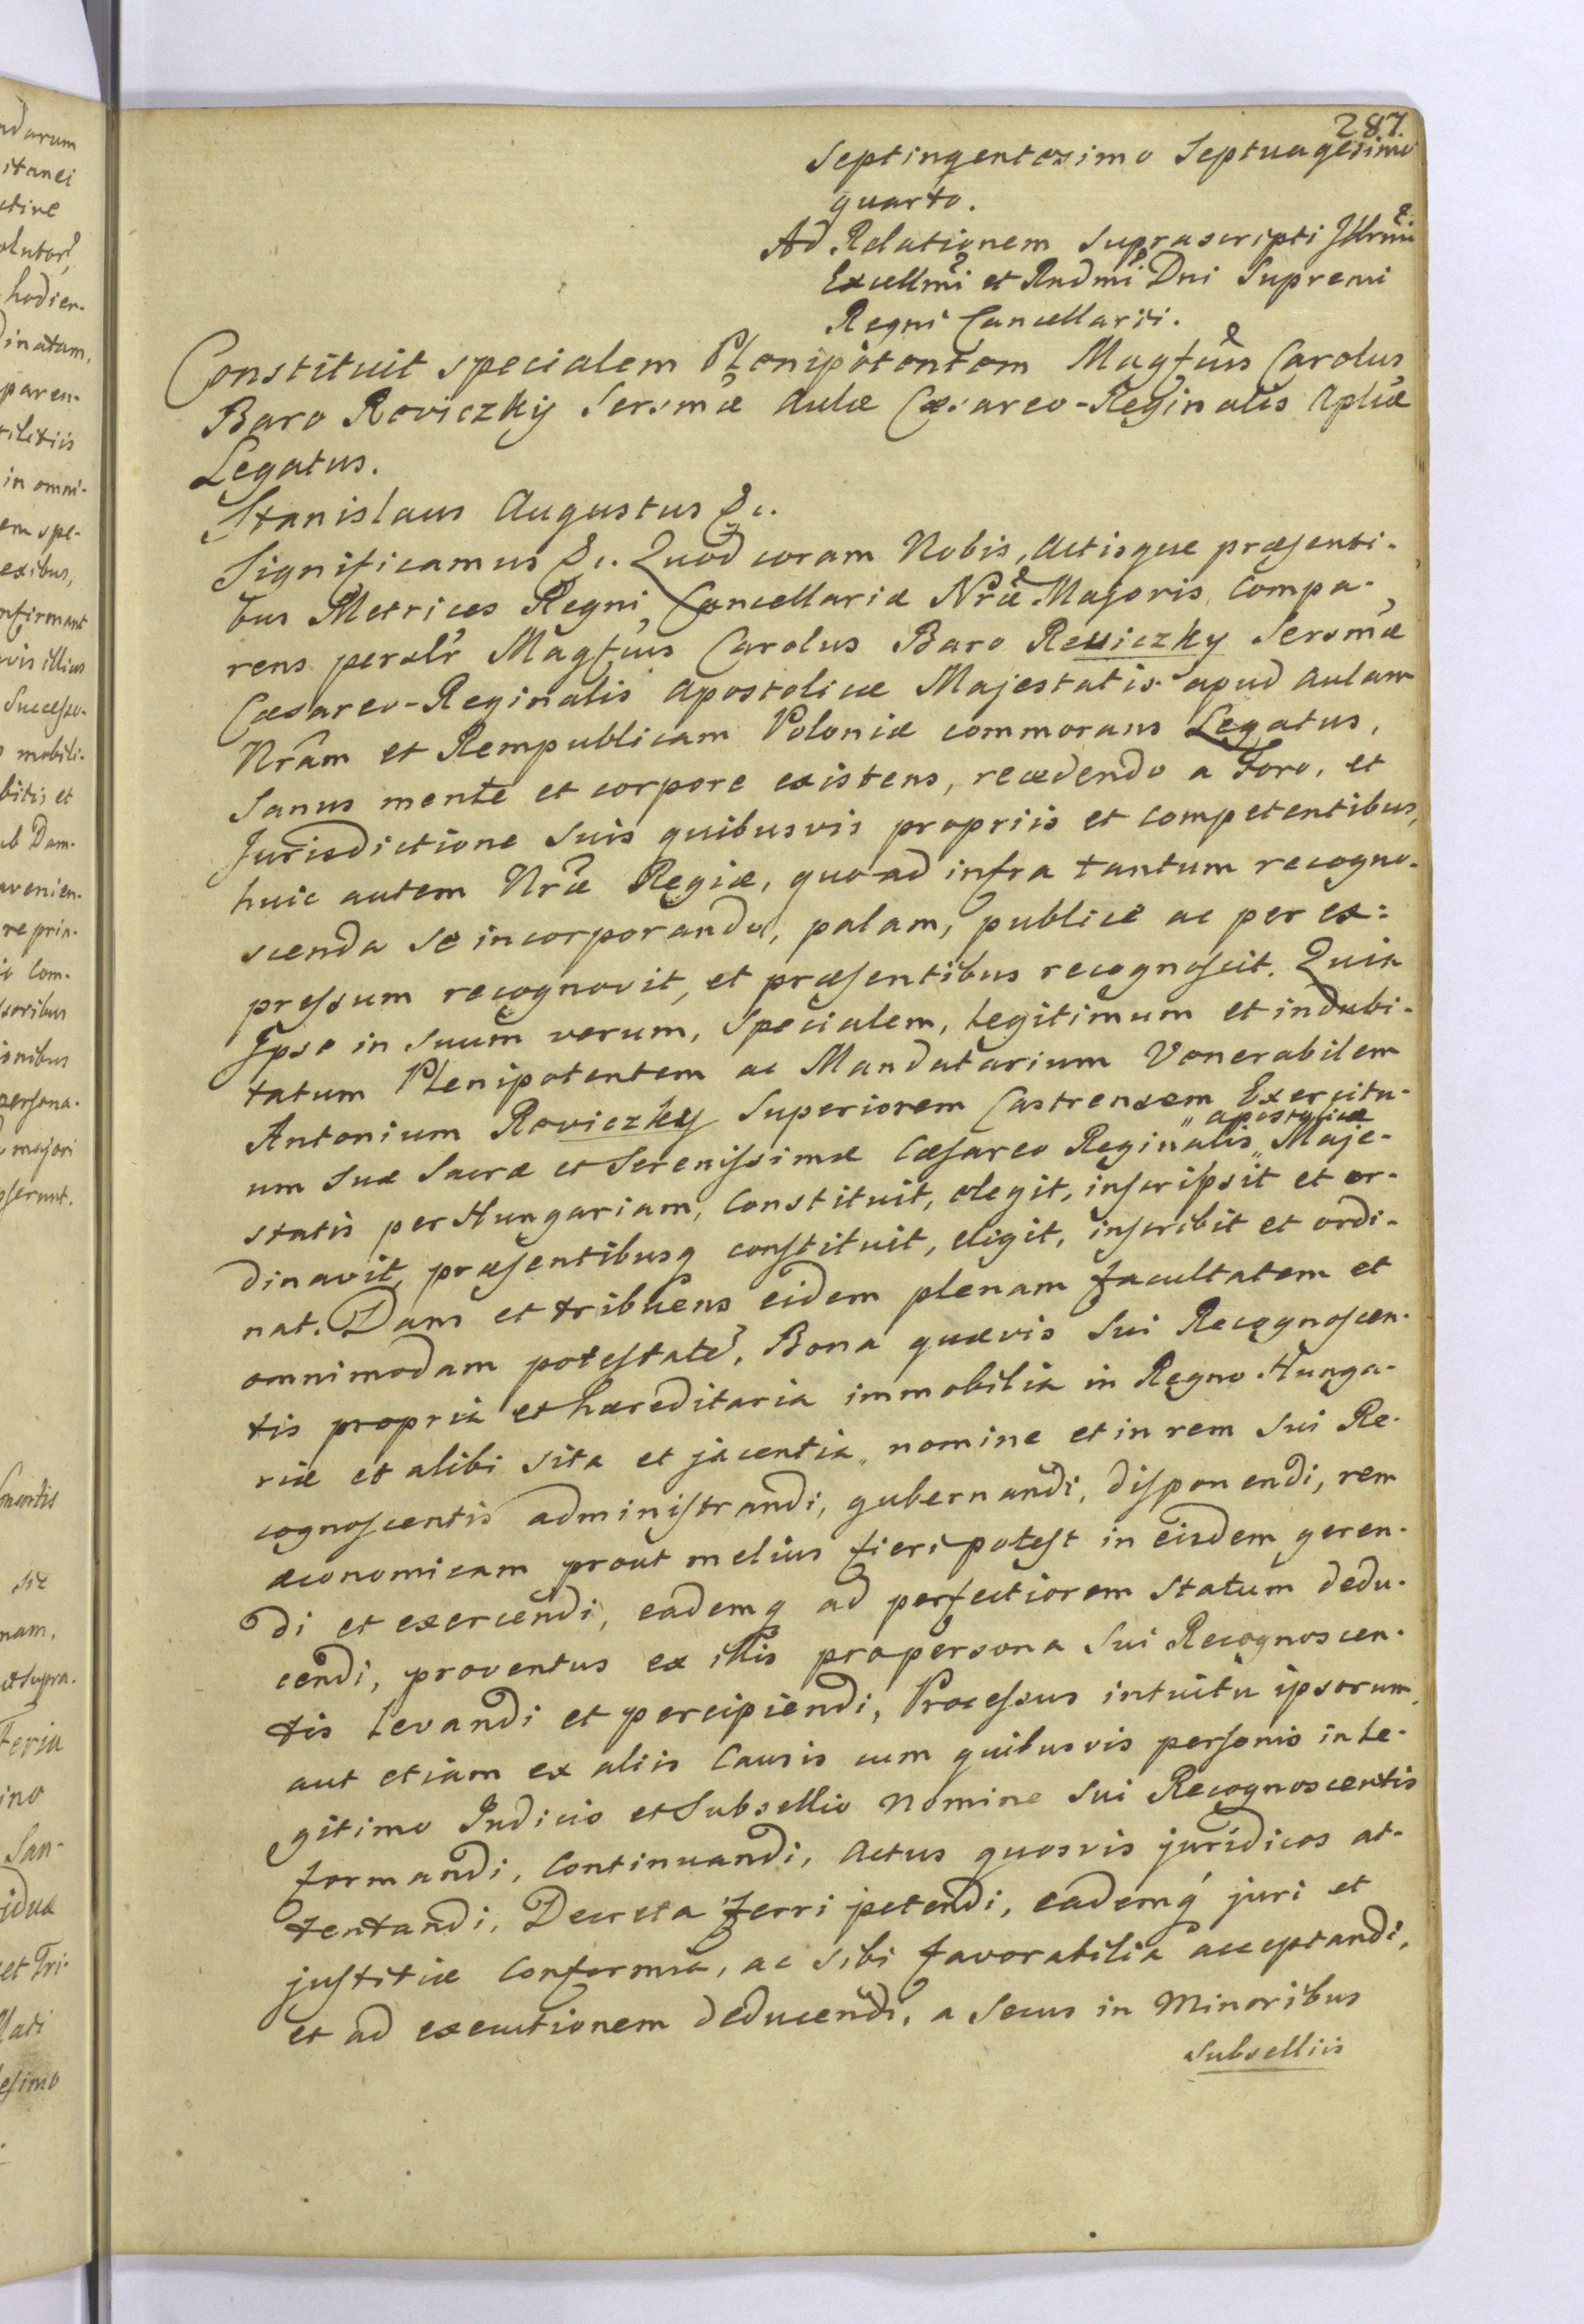 287.
Septingentesimo Septuagesimo
quarto.
Ad Relationem Suprascripti Illrmi
Excellmi et Rndmi Dni Supremi
Regni Cancellarii.
Constituit specialem Plenipotentem Magfcus Carolus
Baro Reviczky Sersmæ Aulæ Cæsareo-Reginalis Aplicæ
Legatus.
Stanislaus Augustus &c.
Significamus &c. Quod coram Nobis, Actisque præsenti-
bus Metrices Regni, Cancellariæ Nræ Majoris compa-
rens persolr Magfcus Carolus Baro Reviczky Sersmæ
Cæsareo-Reginalis Apostolicæ Majestatis apud Aulam
Nram et Rempublicam Poloniæ commorans Legatus,
Sanus mente et corpore existens, recedendo a Foro, et
Jurisdictione suis quibusvis propriis et competentibus,
huic autem Nræ Regiæ, quoad infra tantum recogno-
scenda se incorporando, palam, publice ac per ex-
pressum recognovit, et præsentibus recognoscit. Quia
Ipse in suum verum, specialem, legitimum et indubi-
tatum Plenipotentem ac Mandatarium Venerabilem
Antonium Reviczky Superiorem Castrensem Exercitu-
um Suæ Sacræ et Serenissimæ Cæsareo Reginalis „Apostolicæ„ Maje-
statis per Hungariam, Constituit, elegit, inscripsit et or-
dinavit, præsentibusq constituit, eligit, inscribit et ordi-
nat. Dans et tribuens eidem plenam facultatem et
omnimodam potestate, Bona quævis Sui Recognoscen-
tis propria et hæreditaria immobilia in Regno Hunga-
riæ et alibi sita et jacentia, nomine et in rem Sui Re-
cognoscentis administrandi, gubernandi, disponendi, rem
æconomicam prout melius fieri potest in eisdem geren-
di et exercendi, eademq ad perfectiorem statum dedu-
cendi, proventus ex illis pro persona Sui Recognoscen-
tis levandi et percipiendi, Processus intuitu ipsorum,
aut etiam ex aliis Causis cum quibusvis personis in le-
gitimo Judicio et Subsellio Nomine Sui Recognoscentis
formandi, Continuandi, Actus quosvis juridicos at-
tentandi, Decreta ferri petendi, eademq juri et
justitiæ Conformia, ac sibi favorabilia acceptandi,
et ad executionem deducendi, a Secus in Minoribus
Subselliis